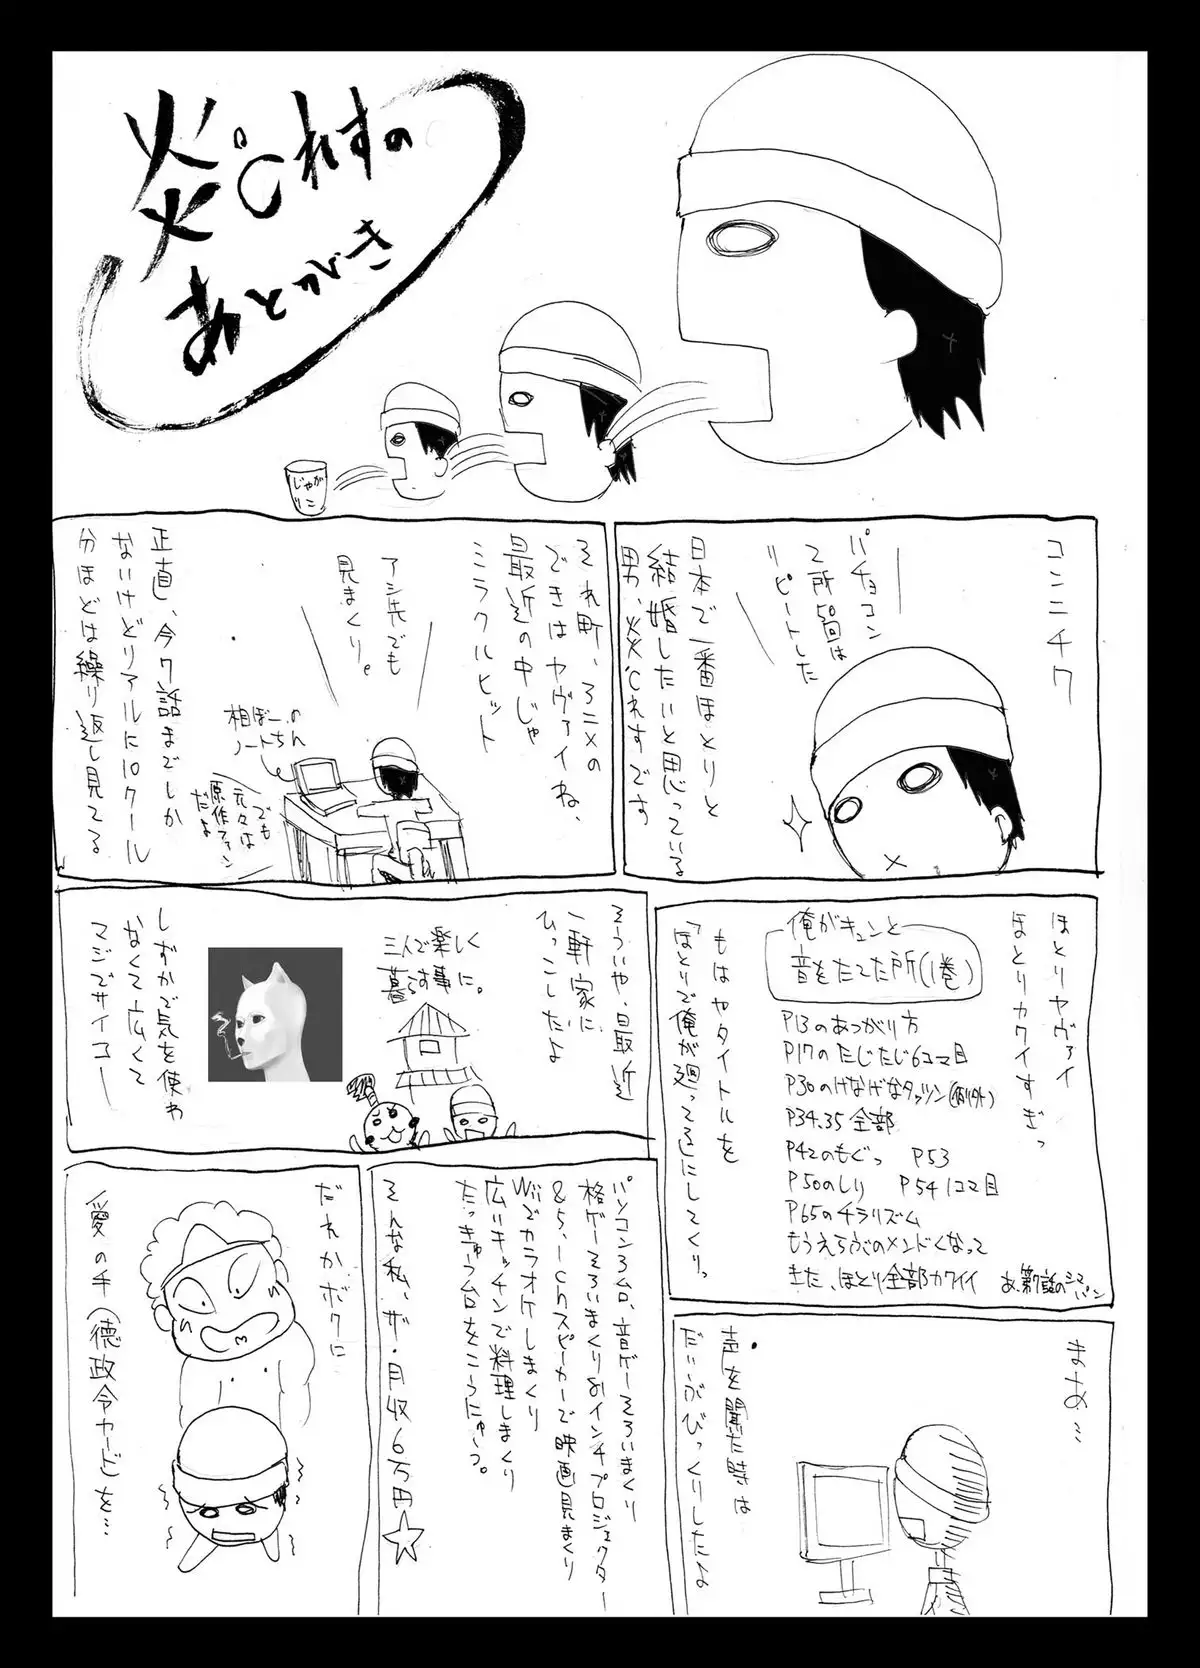 炎℃れすの
あとがき
じゃが
りこ
コンニチワ
パチョコン
2所50回は
リピートした
日本で一番ほとりと
結婚したいと思っている
男、炎℃れすです
それ町、アニメの
できはヤヴァイね、
最近の中じゃ
ミラクルヒット
アシ先でも
見まくり。
相ぼーちん
のノート
でも
元々は
原作ファン
だよ
正直、今7話までしか
ないけどリアルに10クール
分ほどは繰り返し見てる
ほとりヤヴァイ
ほとりカワイすぎっ
俺がキュンと
音をたてた所(1巻)
P13のあつがり方
P17のたじたじ6コマ目
P30のけなげなタッツン(例外)
P34.35 全部
P42のもぐっ P53
P50のしり P54 1コマ目
P65のチラリズム
もうえらぶのメンドくなって
きた、ほとり全部カワイイ
あ、第7話のシマパン
もはやタイトルを
「ほとりで俺が廻ってる」にしてくりっ
そういや、最近
一軒家に
ひっこしたよ
三人で楽しく
暮らす事に。
しずかで気を使わ
なくて広くて
マジでサイコー
まあ…
声を聞いた時は
だいぶびっくりしたよ
パソコン3台、音ゲーそろいまくり
格ゲーそろいまくり80インチプロジェクター
&5.1chスピーカーで映画見まくり
Wiiでカラオケしまくり
広いキッチンで料理しまくり
たっきゅう台をこうにゅう。
そんな私、ザ・月収6万円☆
だれかボクに
愛の手(徳政令カード)を…